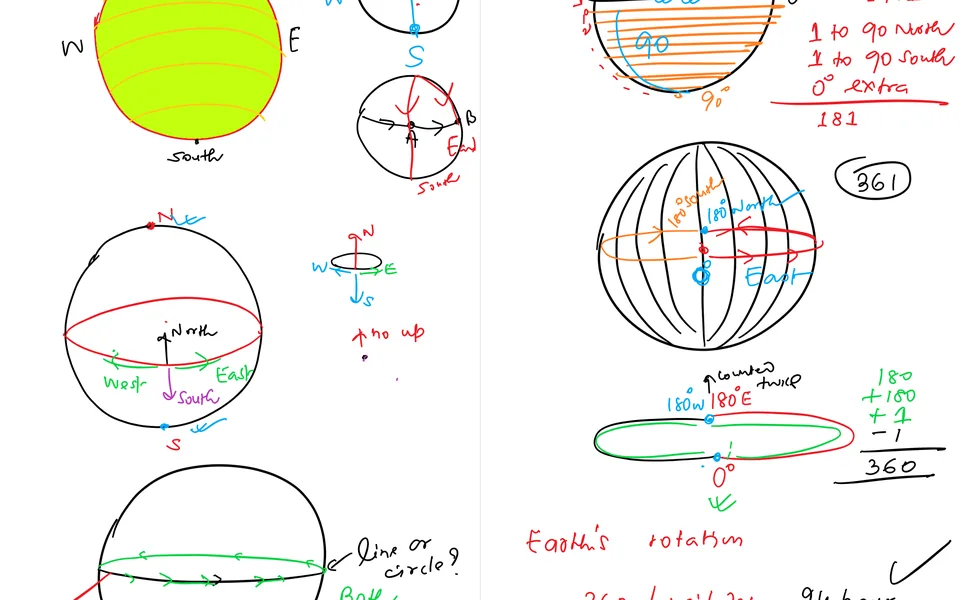 W
E
South
W
S
A
B
East
South
N
N
W
E
S
no up
North
West
East
South
S
line or
circle?
Both
90
90°
1 to 90 North
1 to 90 South
0° extra
181
361
180° South
180° North
0°
East
counted
twice
180°W
180°E
0°
180
+180
+ 1
- 1
360
Earth's rotation